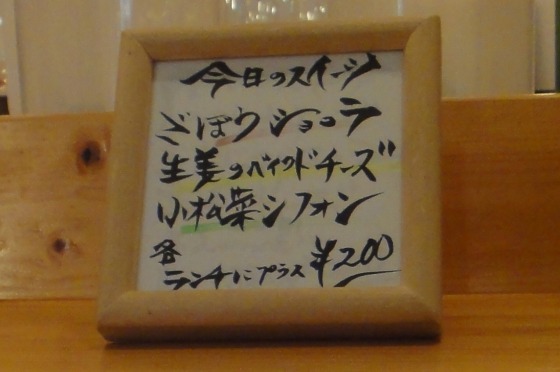 今日のスイーツ
ごぼうショコラ
生姜のベイクドチーズ
小松菜シフォン
各
ランチにプラス ¥200